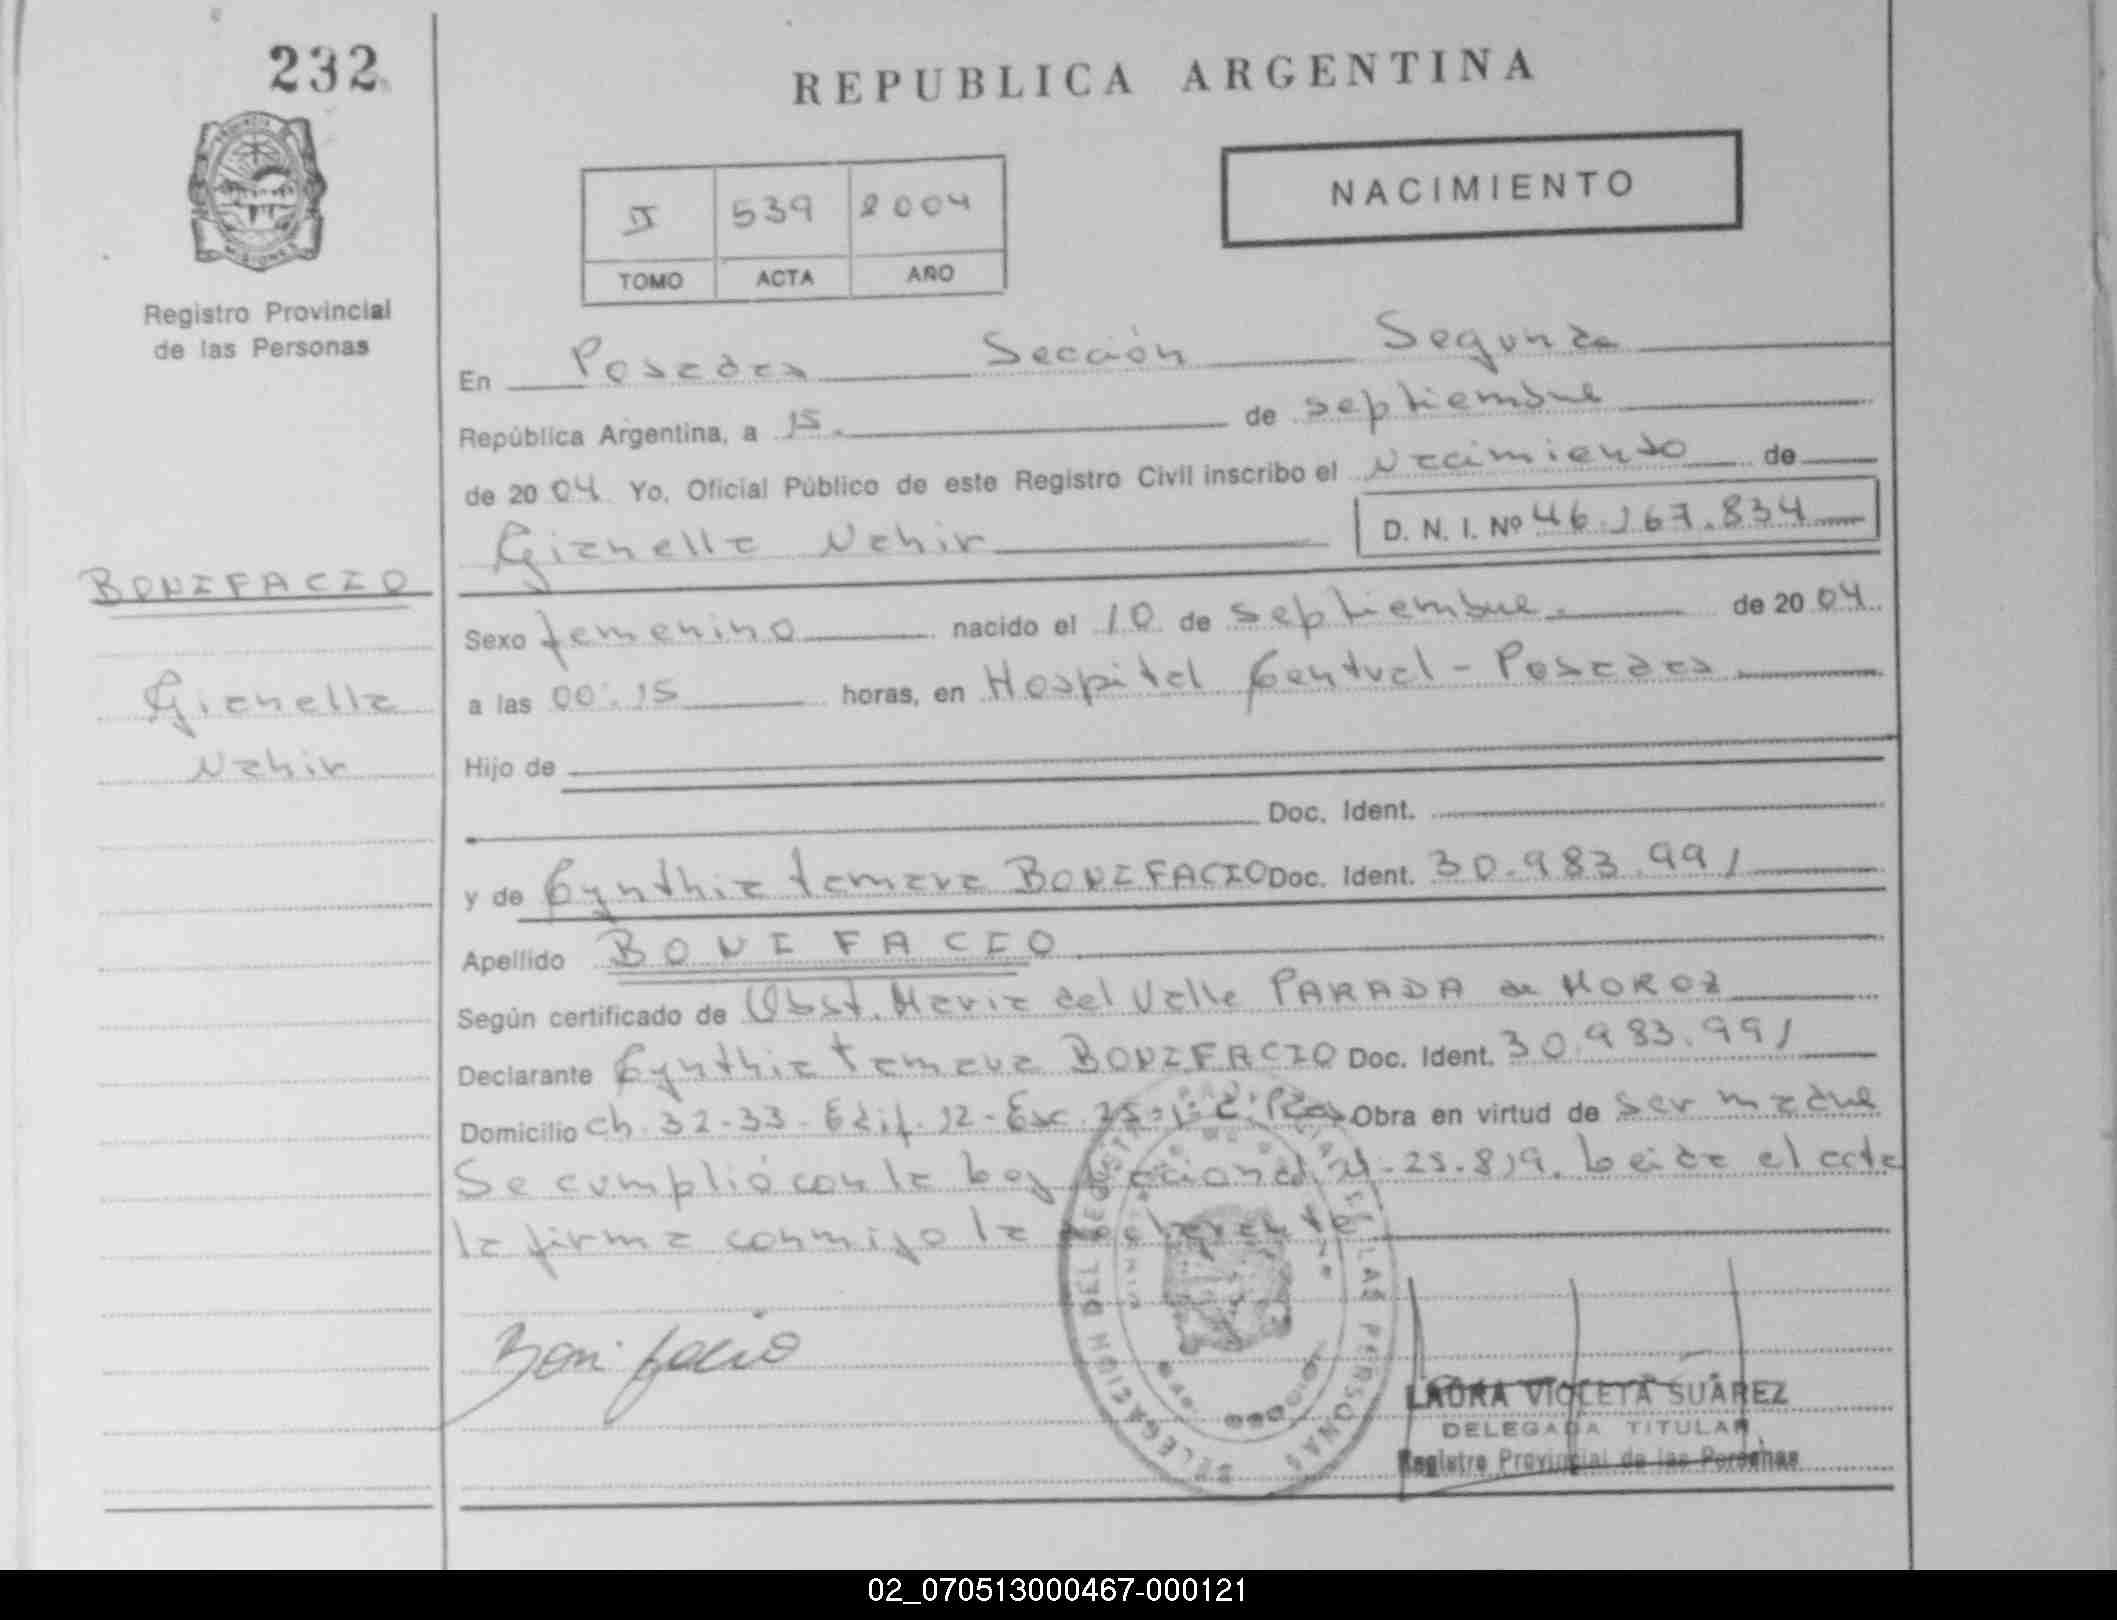 232
REPUBLICA ARGENTINA
NACIMIENTO
II 539 2004
TOMO ACTA AÑO
Registro Provincial
de las Personas
En Posadas Sección Segunda
República Argentina, a 15. de septiembre
de 2004 Yo, Oficial Público de este Registro Civil inscribo el Nacimiento de
Gianella Nahir D. N. I. Nº 46.167.834
BONIFACIO
Gianella
Nahir
Sexo femenino nacido el 10 de septiembre. de 2004
a las 00:15 horas, en Hospital Central - Posadas
Hijo de
Doc. Ident.
y de Cynthia tamara BONIFACIO Doc. Ident. 30.983.991
Apellido BONIFACIO
Según certificado de Obst. Maria del Valle PARADA de MOROZ
Declarante Cynthia tamara BONIFACIO Doc. Ident. 30.983.991
Domicilio Ch. 32-33- Edif. 12- Esc. 25- Obra en virtud de ser madre
Se cumplió con la Ley Nacional 25.819. Leida el acta
la firma conmigo la declarante
Bonifacio
DELEGACION DEL REGISTRO DE LAS PERSONAS
LAURA VIOLETA SUÁREZ
DELEGADA TITULAR
Registro Provincial de las Personas
02_070513000467-000121